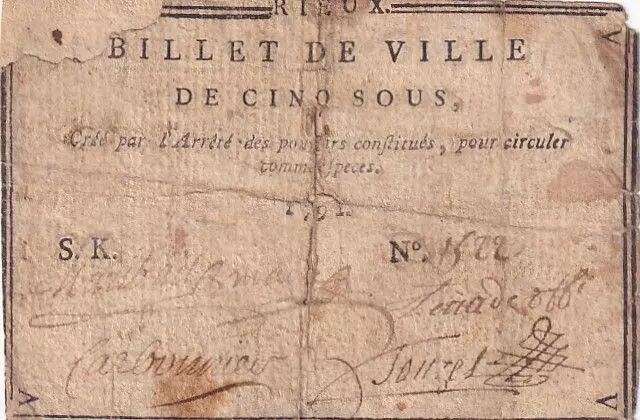 RIEUX.
BILLET DE VILLE
DE CINQ SOUS,
Créé par l'Arrêté des pouvoirs constitués, pour circuler
comme especes.
1791.
S. K. N°. 1522
Carbonnier